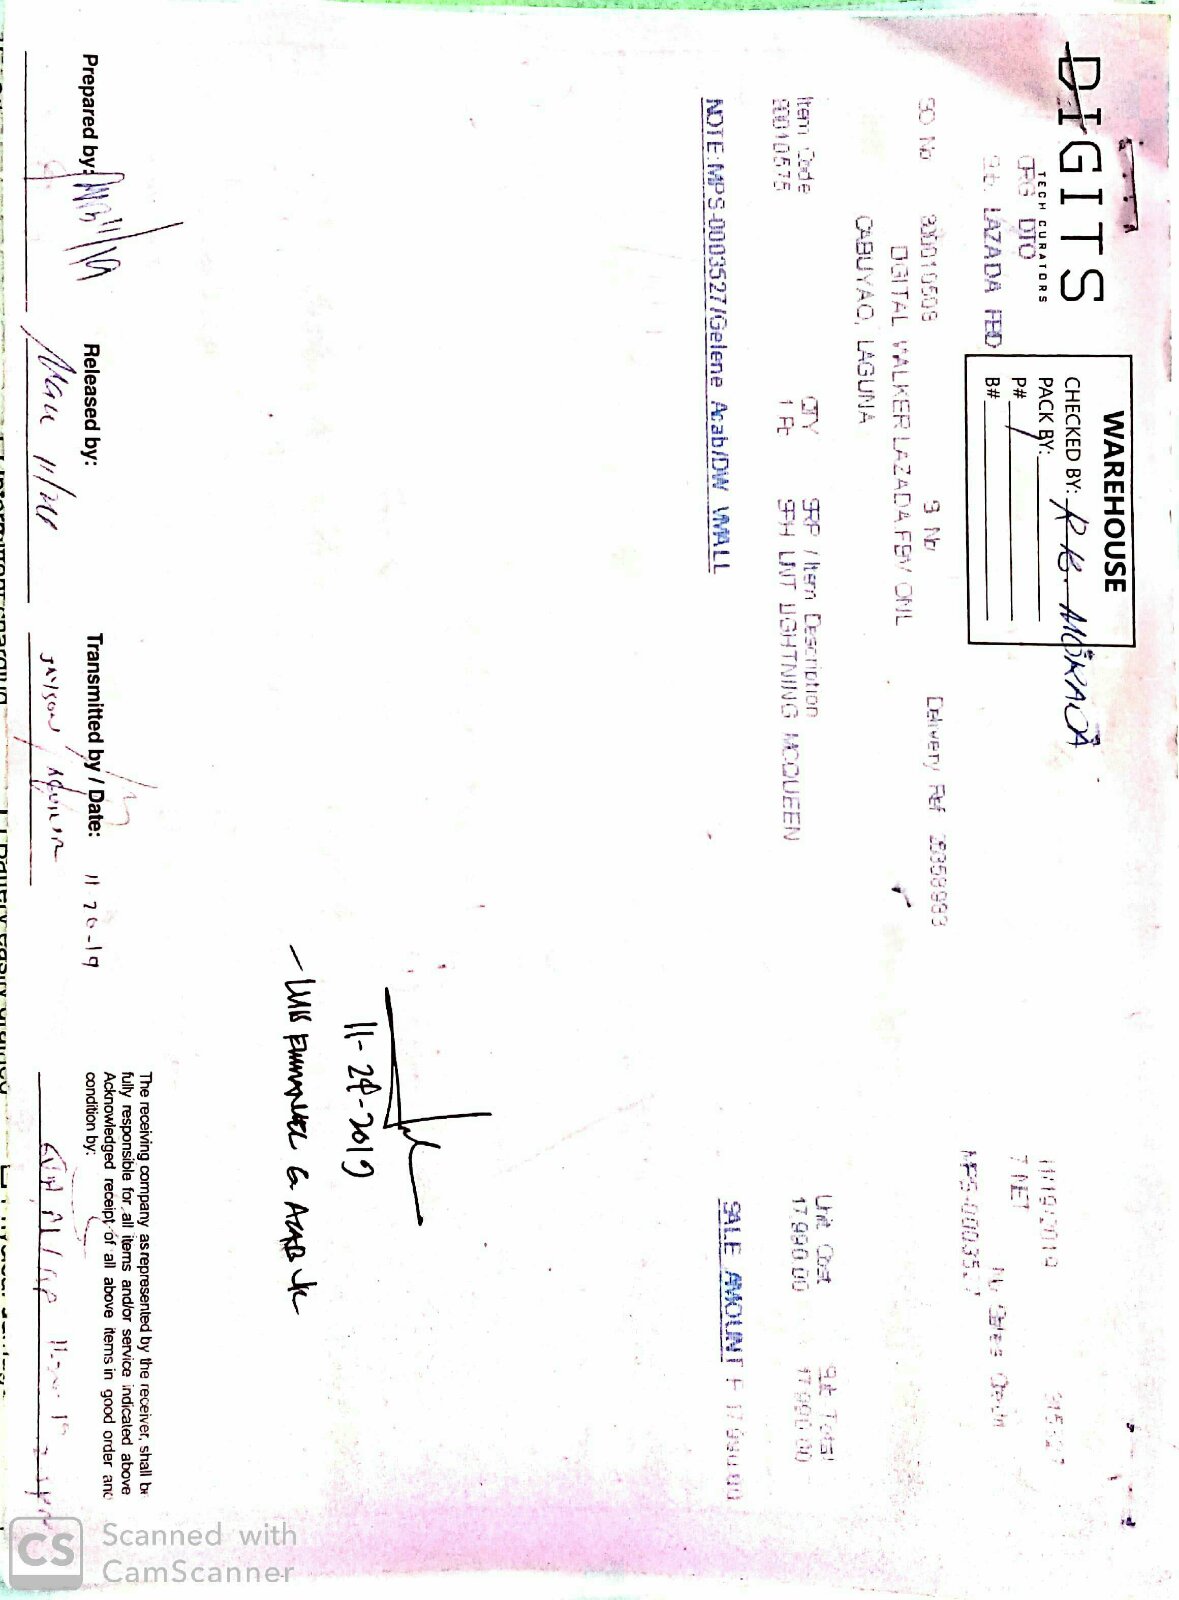 DIGITS
TECH CURATORS
ORG DTO
Sub. LAZADA FBD
WAREHOUSE
CHECKED BY: R B. MORADA
PACK BY:
P#
B#
11/19/2019
7 NET
No Sales Credit
MPS-0003527
SO No 800010509 S No Delivery Ref 25358983
DIGITAL WALKER LAZADA FBV ONL
CABUYAO, LAGUNA
Item Code QTY SRP / Item Description Unit Cost Sub Total
80010575 1 Pc SPH ULT LIGHTNING MCQUEEN 17,990.00 17,990.00
NOTE:MPS-0003527/Gelene Acab/DW VMALL
SALE AMOUNT P 17,990.00
11-24-2019
- LUIS EMMANUEL G ACAB JR
Prepared by: 11/19
Released by:
Transmitted by / Date: 11 20-19
JAYSON AGUILAR
The receiving company as represented by the receiver, shall be
fully responsible for all items and/or service indicated above
Acknowledged receipt of all above items in good order and
condition by:
11-20-19
Scanned with
CamScanner
CS